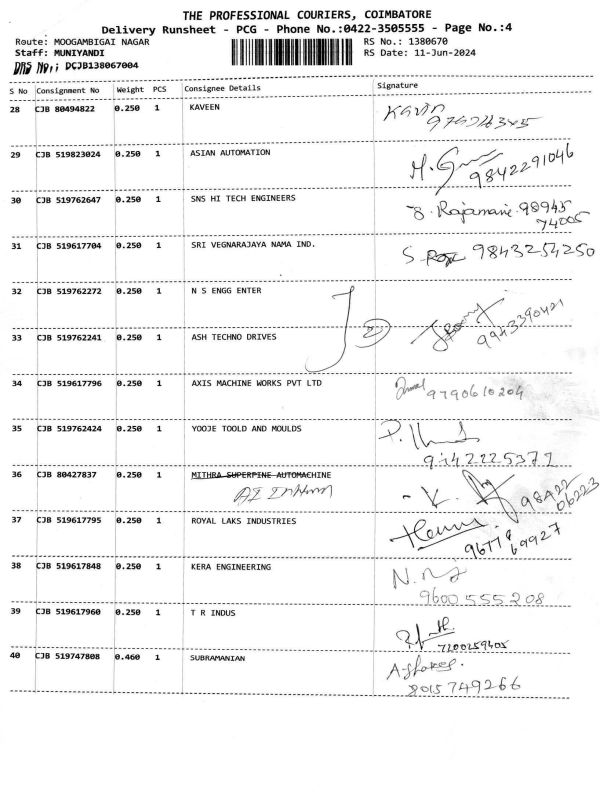 THE PROFESSIONAL COURIERS, COIMBATORE
Delivery Runsheet - PCG - Phone No.:0422-3505555 - Page No.:4
Route: MOOGAMBIGAI NAGAR RS No.: 1380670
Staff: MUNIYANDI RS Date: 11-Jun-2024
DRS No.: DCJB138067004
S No Consignment No Weight PCS Consignee Details Signature
28 CJB 80494822 0.250 1 KAVEEN
29 CJB 519823024 0.250 1 ASIAN AUTOMATION 9842291046
30 CJB 519762647 0.250 1 SNS HI TECH ENGINEERS S. Rajamani 98945
74005
31 CJB 519617704 0.250 1 SRI VEGNARAJAYA NAMA IND. S 9843254250
32 CJB 519762272 0.250 1 N S ENGG ENTER
33 CJB 519762241 0.250 1 ASH TECHNO DRIVES 2 9943390421
34 CJB 519617796 0.250 1 AXIS MACHINE WORKS PVT LTD 9790610204
35 CJB 519762424 0.250 1 YOOJE TOOLD AND MOULDS
9442225372
36 CJB 80427837 0.250 1 MITHRA SUPERFINE AUTOMACHINE 98422
06223
37 CJB 519617795 0.250 1 ROYAL LAKS INDUSTRIES
96778
69927
38 CJB 519617848 0.250 1 KERA ENGINEERING
9600555208
39 CJB 519617960 0.250 1 T R INDUS
7200259405
40 CJB 519747808 0.460 1 SUBRAMANIAN
8015749266